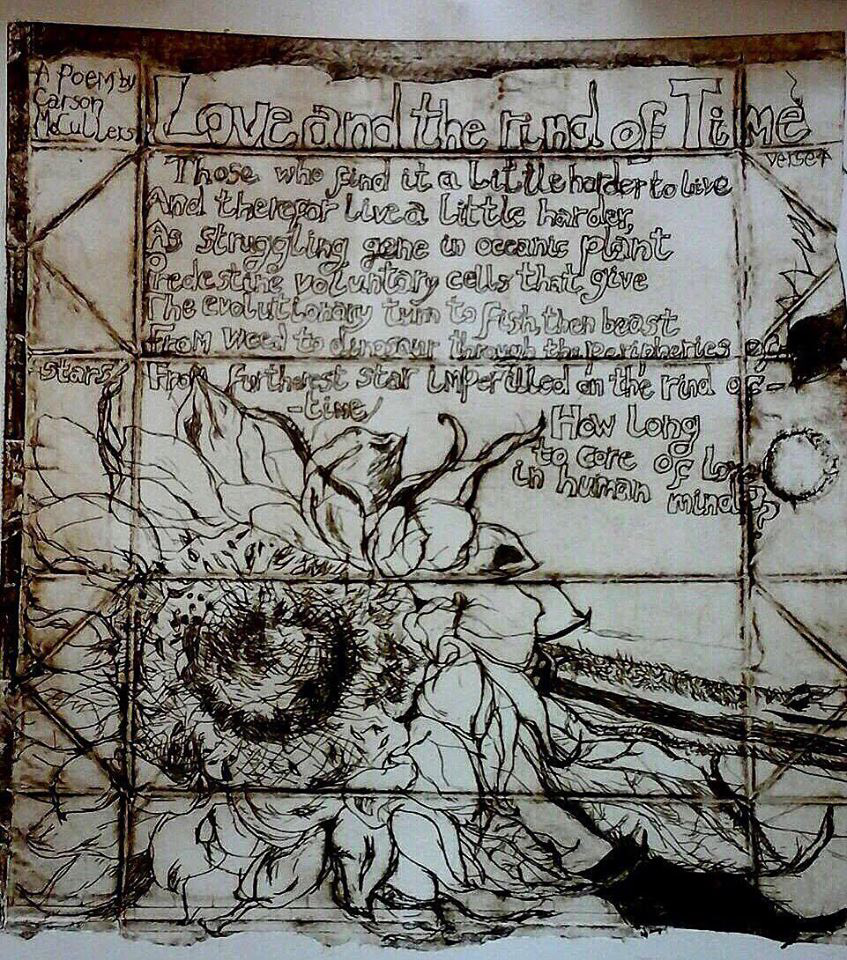 A Poem by
Carson
McCullers
Love and the rind of Time
verse 1
Those who find it a little harder to live
And therefor live a little harder,
As struggling gene in oceanic plant
Predestine voluntary cells that give
The evolutionary turn to fish, then beast
From weed to dinosaur through the peripheries of
-stars, From furtherest star imperilled on the rind of-
-time,
How long
to core of love
in human mind?